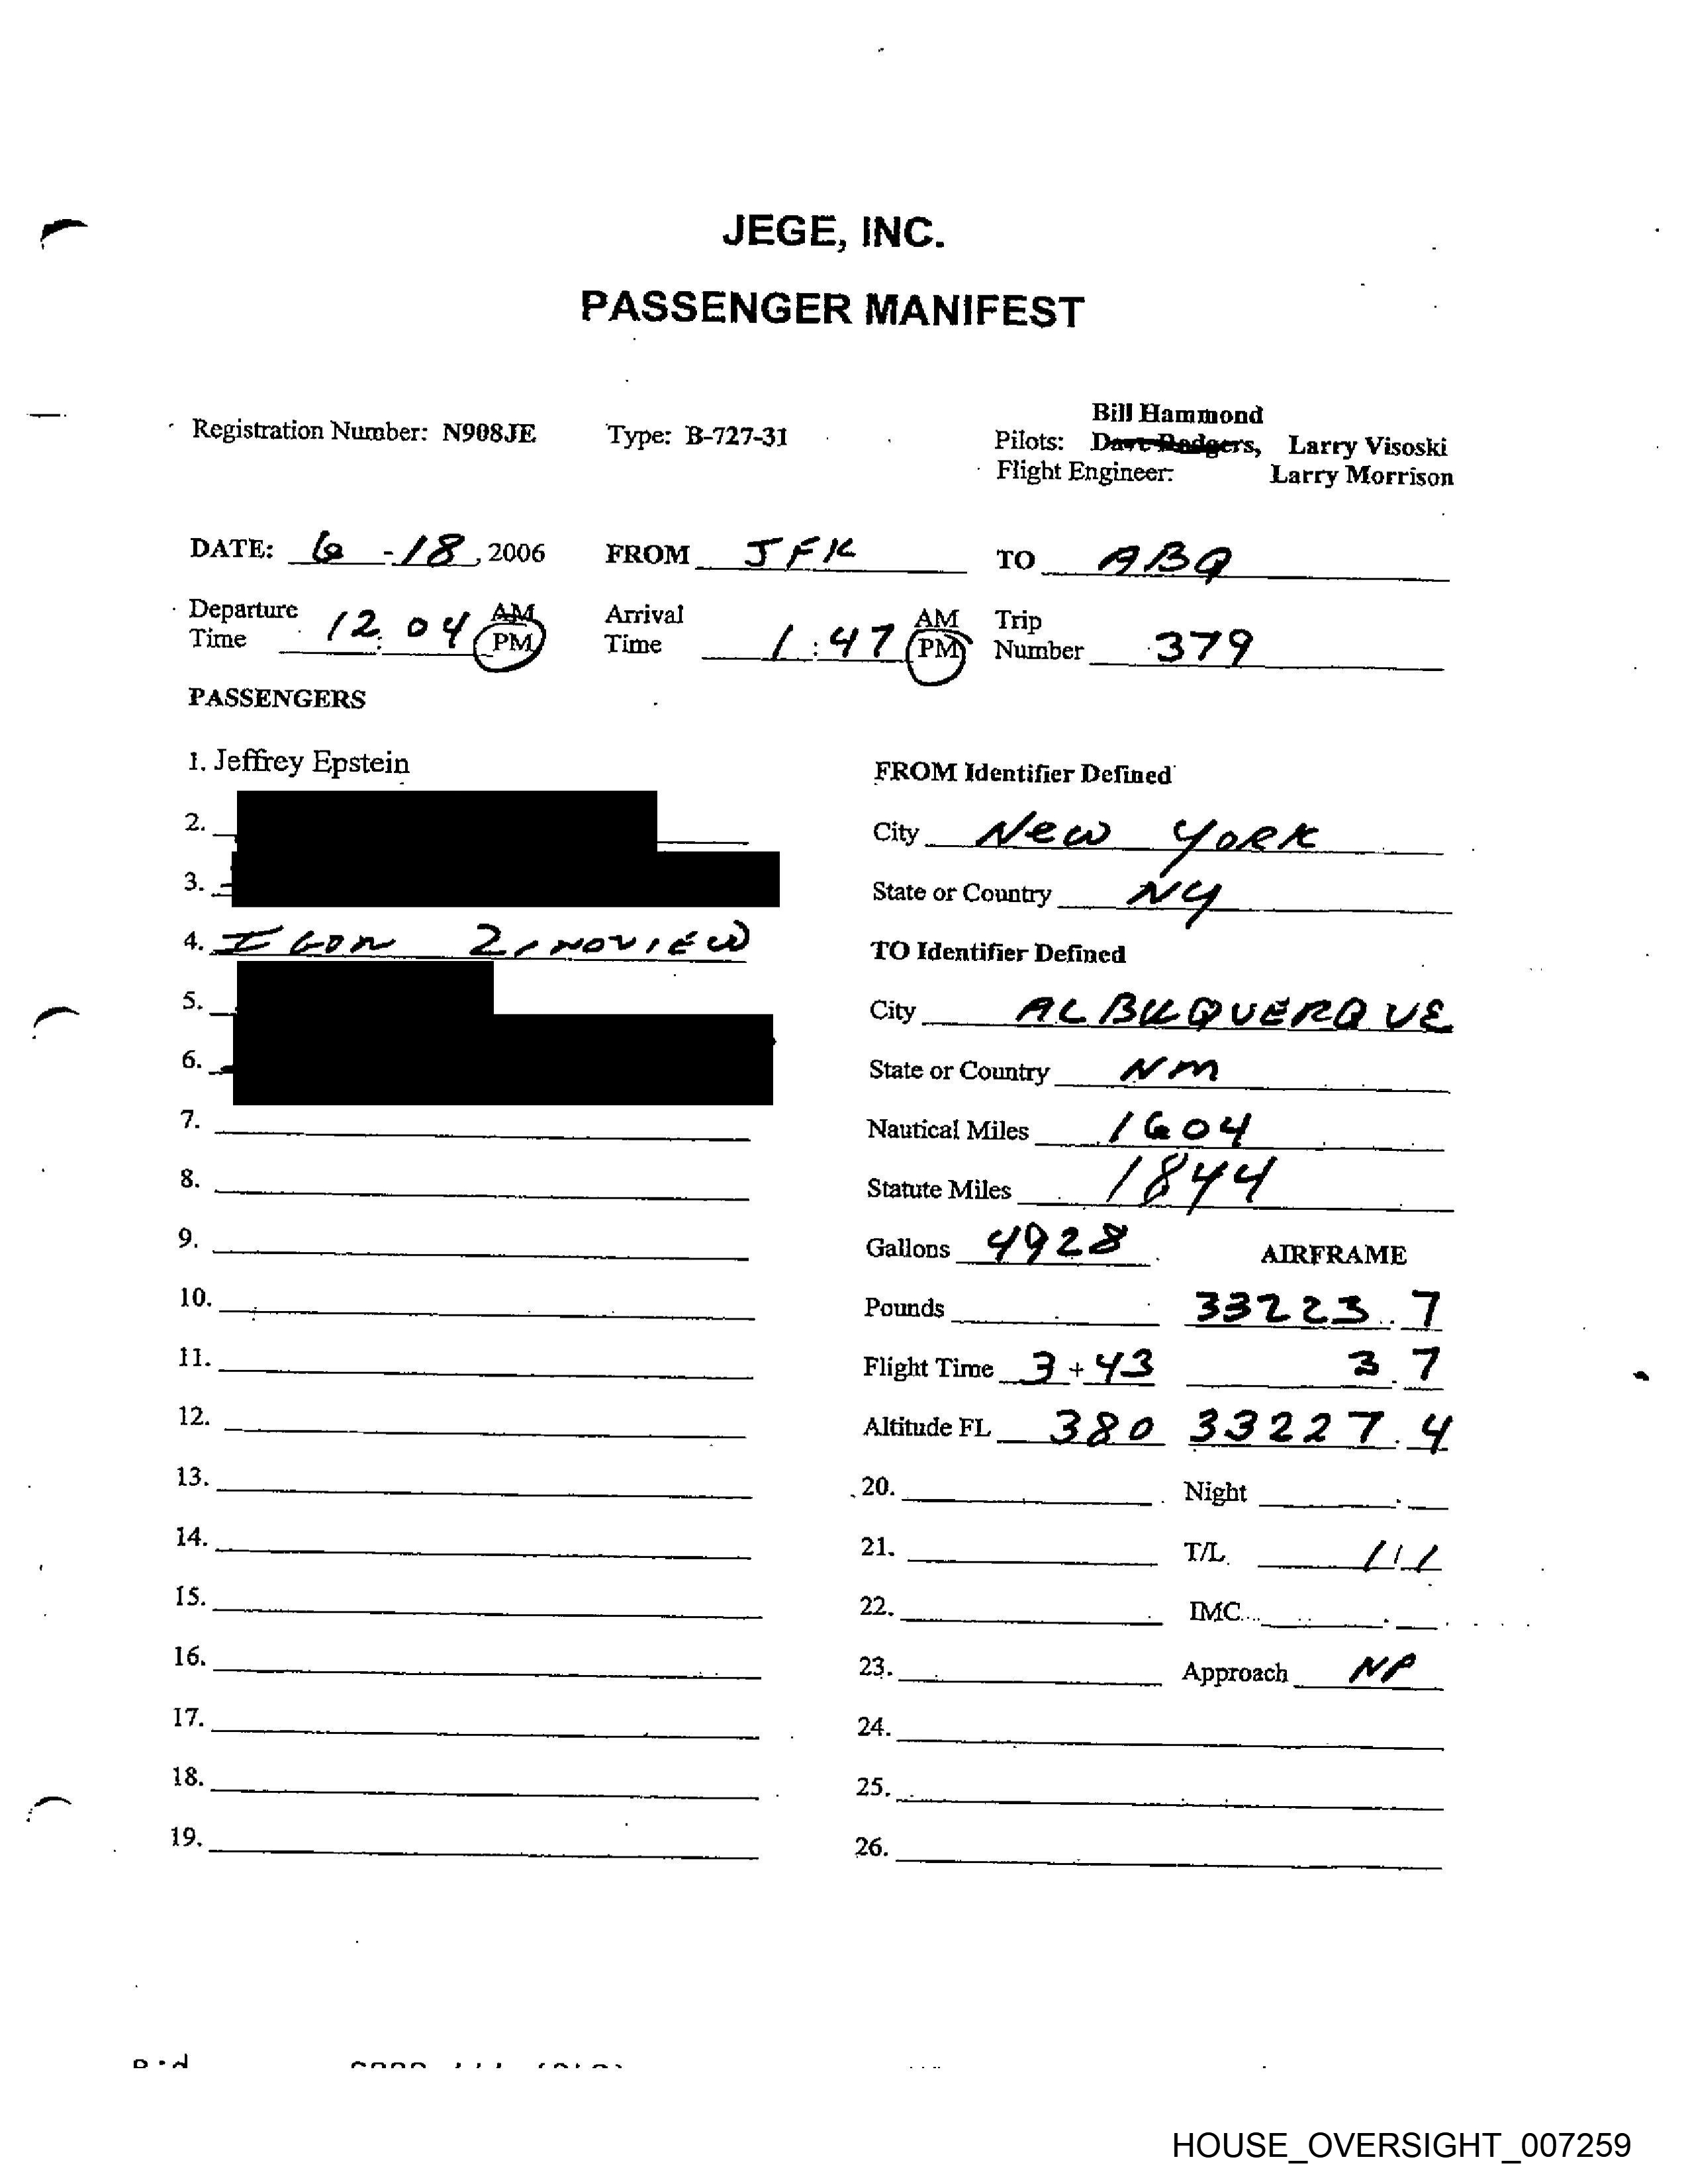 JEGE, INC.
PASSENGER MANIFEST
Registration Number: N908JE Type: B-727-31 Bill Hammond
Pilots: Dave Rodgers, Larry Visoski
Flight Engineer: Larry Morrison
DATE: 6 - 18, 2006 FROM JFK TO ABQ
Departure Time 12:04 AM PM Arrival Time 1:47 AM PM Trip Number 379
PASSENGERS
1. Jeffrey Epstein
2.
3.
4. IGOR ZINOVIEW
5.
6.
7.
8.
9.
10.
11.
12.
13.
14.
15.
16.
17.
18.
19.
FROM Identifier Defined
City New York
State or Country NY
TO Identifier Defined
City ALBUQUERQUE
State or Country NM
Nautical Miles 1604
Statute Miles 1844
Gallons 4928 AIRFRAME
Pounds 33223.7
Flight Time 3+43 3.7
Altitude FL 380 33227.4
20. Night
21. T/L 1/1
22. IMC
23. Approach NP
24.
25.
26.
HOUSE_OVERSIGHT_007259